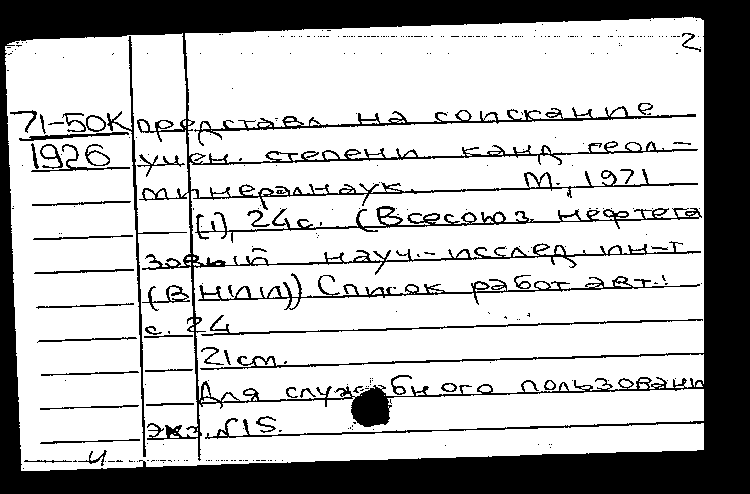 2
71-50К представл на соискание
1926 учен. степени канд геол.-
минералнаук. М., 1971
[1], 24с. (Всесоюз нефтега
зовый науч.-исслед. ин-т
(ВНИИ)) Список работ авт.:
с. 24
21см.
Для служебного пользовани
экз. №15.
ч